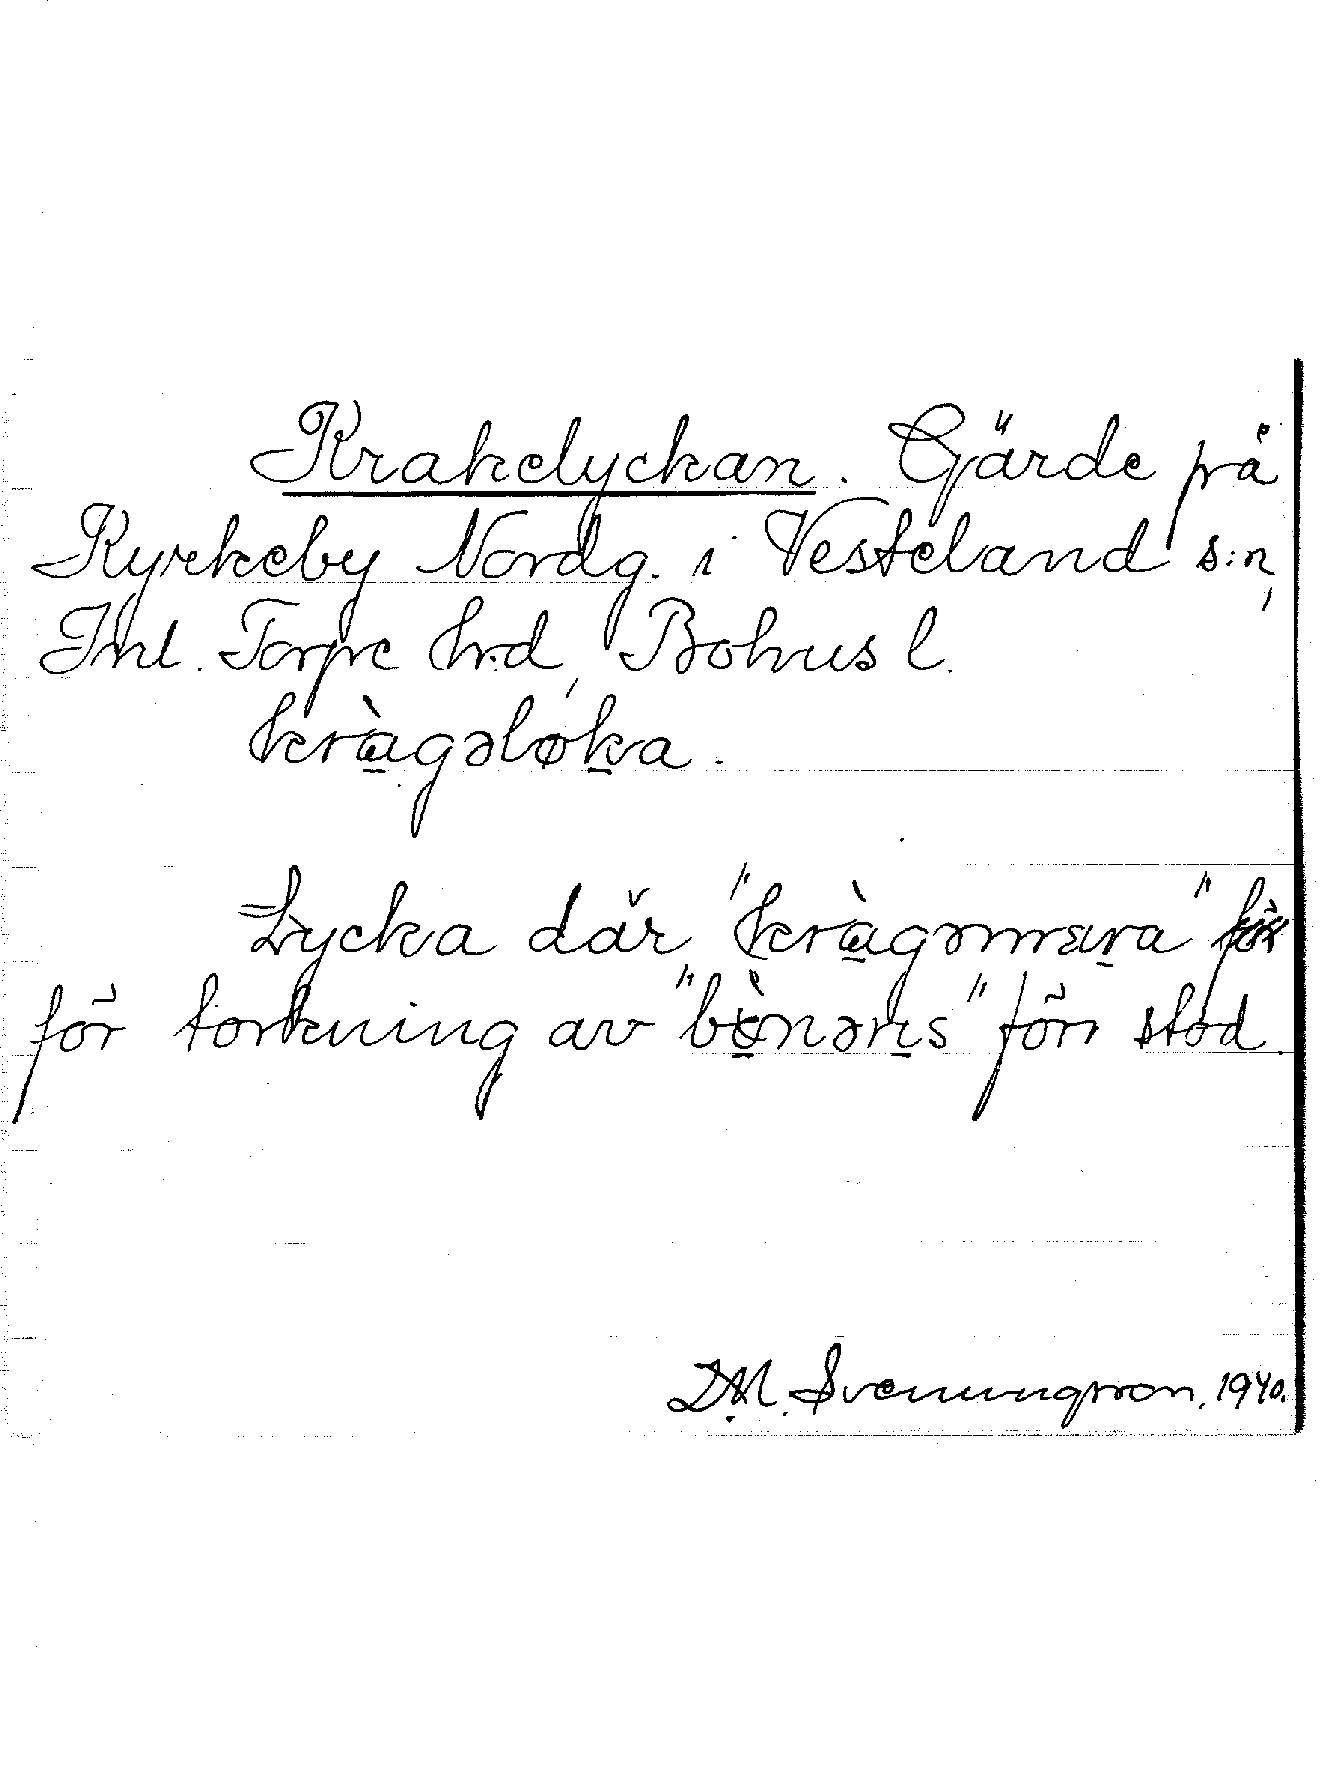 Krakelyckan. Gärde på
Kyrkeby Nordg. i Vesteland s:n,
Inl. Torpe hrd, Bohus l.
kràgəløka.
Lycka där "kràgəmara"
för torkning av "bònəris" förr stod.
D.M. Svenungsson. 1940.